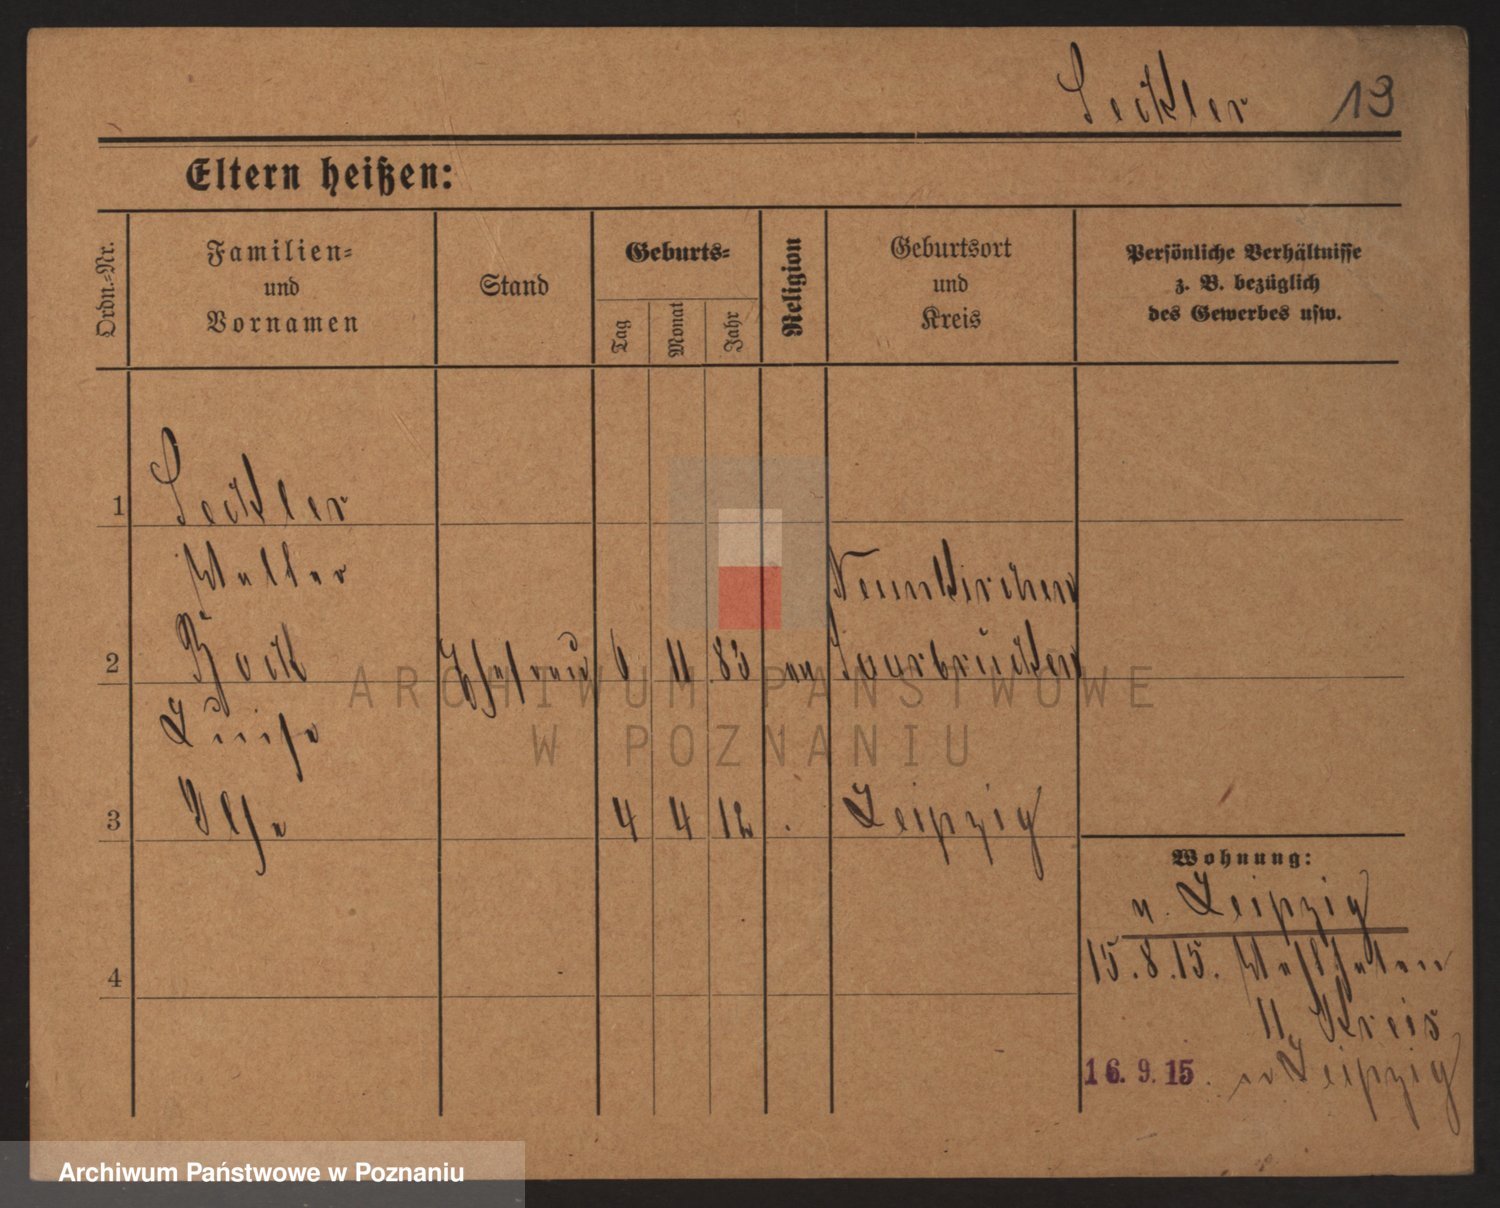 Seckler 19
Eltern heißen:
Ordn.-Nr.
Familien-
und
Vornamen
Stand
Geburts-
Tag
Monat
Jahr
Religion
Geburtsort
und
Kreis
Persönliche Verhältnisse
z. B. bezüglich
des Gewerbes usw.
1 Seckler
Walter
Neunkirchen
2 Bock Ehefrau 6 11 83 ev Saarbrücken
Luise
3 Ilse 4 4 12 Leipzig
Wohnung:
n. Leipzig
15.8.15.
4
II Kreis
16. 9. 15. Leipzig
ARCHIWUM PAŃSTWOWE
W POZNANIU
Archiwum Państwowe w Poznaniu